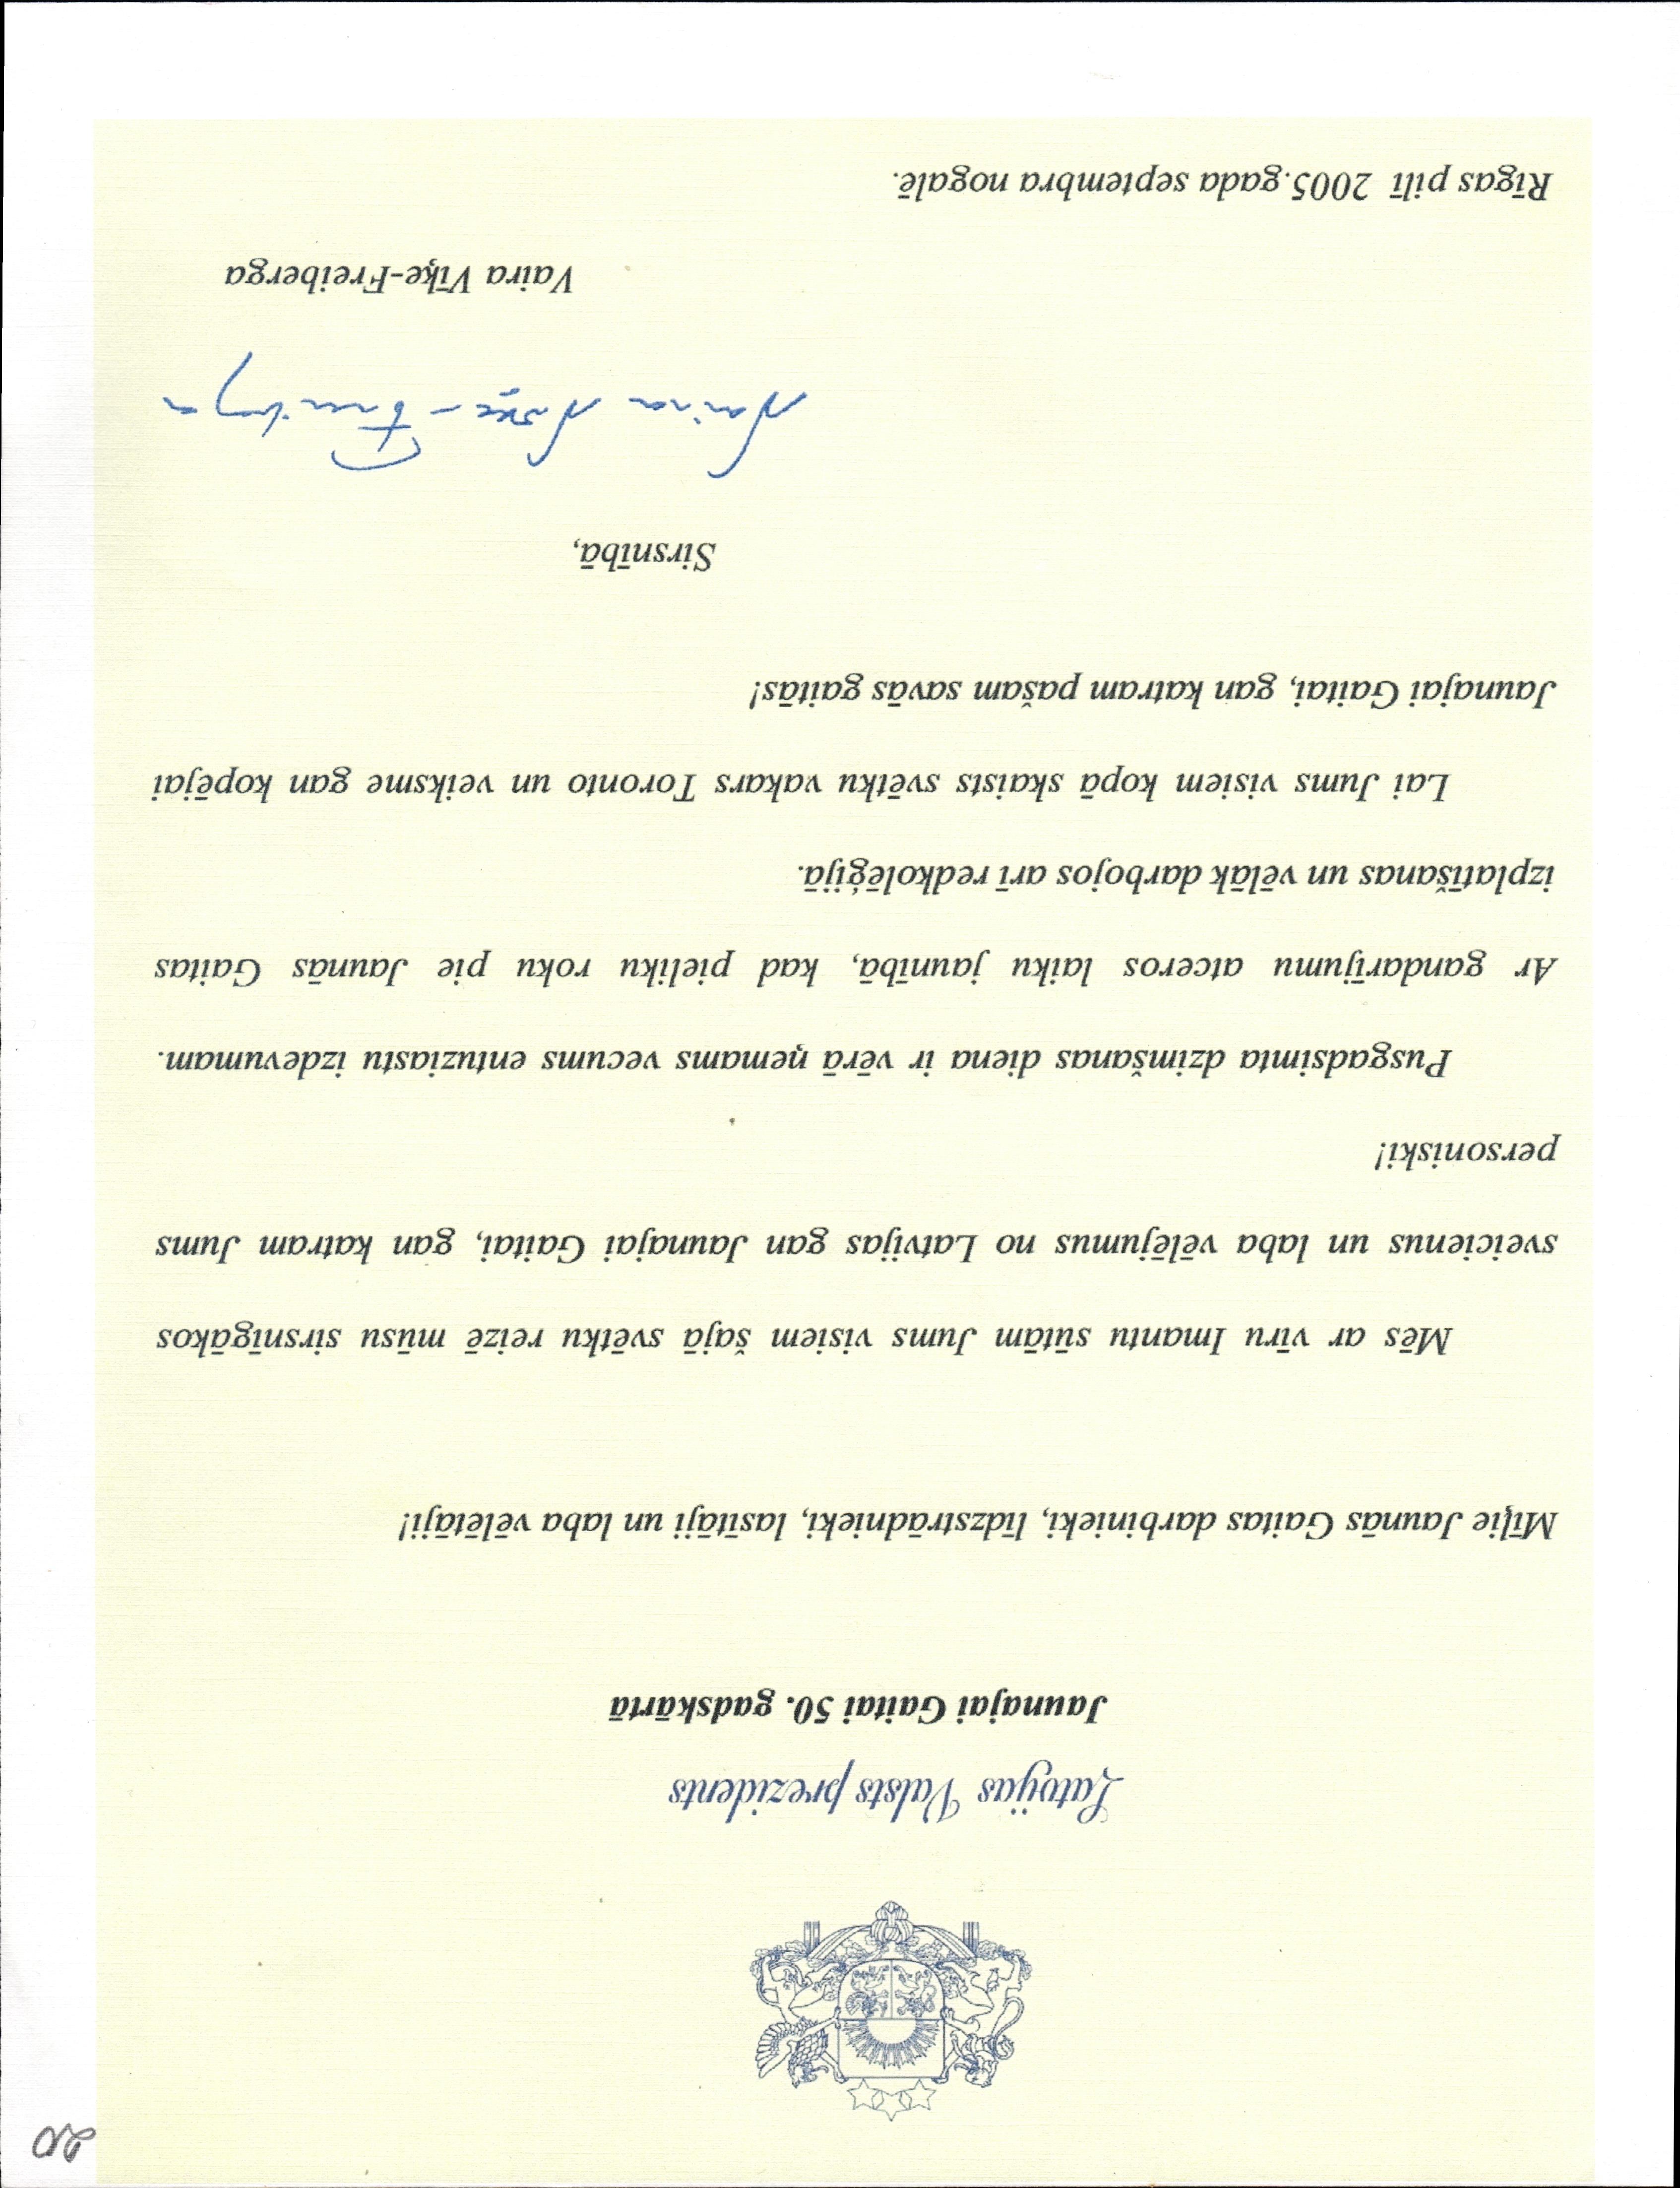 20
Latvijas Valsts prezidents
Jaunajai Gaitai 50. gadskārtā
Mīļie Jaunās Gaitas darbinieki, līdzstrādnieki, lasītāji un laba vēlētāji!
Mēs ar vīru Imantu sūtām Jums visiem šajā svētku reizē mūsu sirsnīgākos
sveicienus un laba vēlējumus no Latvijas gan Jaunajai Gaitai, gan katram Jums
personiski!
Pusgadsimta dzimšanas diena ir vērā ņemams vecums entuziastu izdevumam.
Ar gandarījumu atceros laiku jaunībā, kad pieliku roku pie Jaunās Gaitas
izplatīšanas un vēlāk darbojos arī redkolēģijā.
Lai Jums visiem kopā skaists svētku vakars Toronto un veiksme gan kopējai
Jaunajai Gaitai, gan katram pašam savās gaitās!
Sirsnībā,
Vaira Vīķe-Freiberga
Vaira Vīķe-Freiberga
Rīgas pilī 2005.gada septembra nogalē.